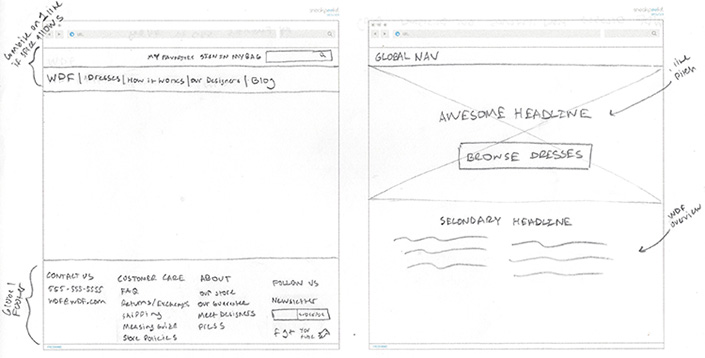 Combine on 1 line
if space allows
MY FAVORITES SIGN IN MY BAG
WDF | Dresses | How it Works | Our Designers | Blog
Global
Footer
CONTACT US
555-555-5555
WDF@WDF.com
CUSTOMER CARE
FAQ
Returns/Exchanges
Shipping
Measuring Guide
Store Policies
ABOUT
Our Store
Our Guarantee
Meet Designers
Press
FOLLOW US
Newsletter
GLOBAL NAV
AWESOME HEADLINE
BROWSE DRESSES
1 line
pitch
SECONDARY HEADLINE
WDF
overview